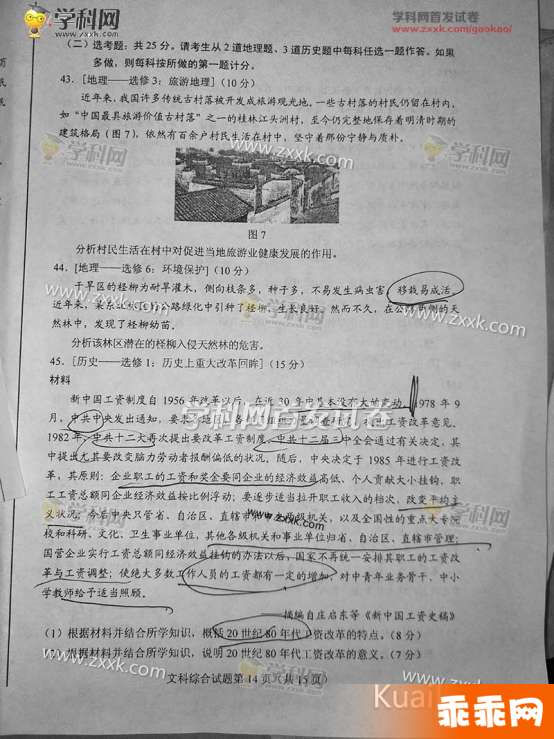 学科网
WWW.ZXXK.COM
学科网首发试卷
www.zxxk.com/gaokao/
(二)选考题:共 25 分。请考生从 2 道地理题、3 道历史题中每科任选一题作答。如果
多做,则每科按所做的第一题计分。
43. [地理——选修 3:旅游地理](10 分)
近年来,我国许多传统古村落被开发成旅游观光地,一些古村落的村民仍留在村内,
如“中国最具旅游价值古村落”之一的桂林江头洲村,至今仍完整地保存着明清时期的
建筑格局(图 7),依然有百余户村民生活在村中,坚守着那份宁静与质朴。
图 7
分析村民生活在村中对促进当地旅游业健康发展的作用。
44. [地理——选修 6:环境保护](10 分)
干旱区的柽柳为耐旱灌木,侧向枝条多,种子多,不易发生病虫害,移栽易成活。
近年来,某东北 公路绿化中引种了柽柳,生长良好。然而不久,在公路两侧的天
然林中,发现了柽柳幼苗。
分析该林区潜在的柽柳入侵天然林的危害。
45. [历史——选修 1:历史上重大改革回眸](15 分)
材料
新中国工资制度自 1956 年改革以后,在近 30 年中基本没有大的变动。1978 年 9
月,中共中央发出通知,要 各 工资改革意见。
1982年,中共十二大再次提出要改革工资制度,中共十二届三中全会通过有关决定,其
中提出尤其要改变脑力劳动者报酬偏低的状况。随后,中央决定于 1985 年进行工资改
革,其原则:企业职工的工资和奖金要同企业的经济效益高低、个人贡献大小挂钩,职
工工资总额同企业经济效益按比例浮动;要逐步适当拉开职工收入的档次,改变平均主
义状况。今后中央只管省、自治区、直辖市 级机关,以及全国性的重点大专院
校和科研、文化、卫生事业单位,其他各级机关和事业单位归省、自治区、直辖市管理;
国营企业实行工资总额同经济效益挂钩的办法以后,国家不再统一安排其职工的工资改
革与工资调整;使绝大多数工作人员的工资都有一定的增加,对中青年业务骨干、中小
学教师给予适当照顾。
——摘编自庄启东等《新中国工资史稿》
(1)根据材料并结合所学知识,概括 20 世纪 80 年代工资改革的特点。(8 分)
(2)根据材料并结合所学知识,说明 20 世纪 80 年代工资改革的意义。(7 分)
文科综合试题第 14 页(共 15 页)
学科网首发试卷
www.zxxk.com
Kuai
乖乖网